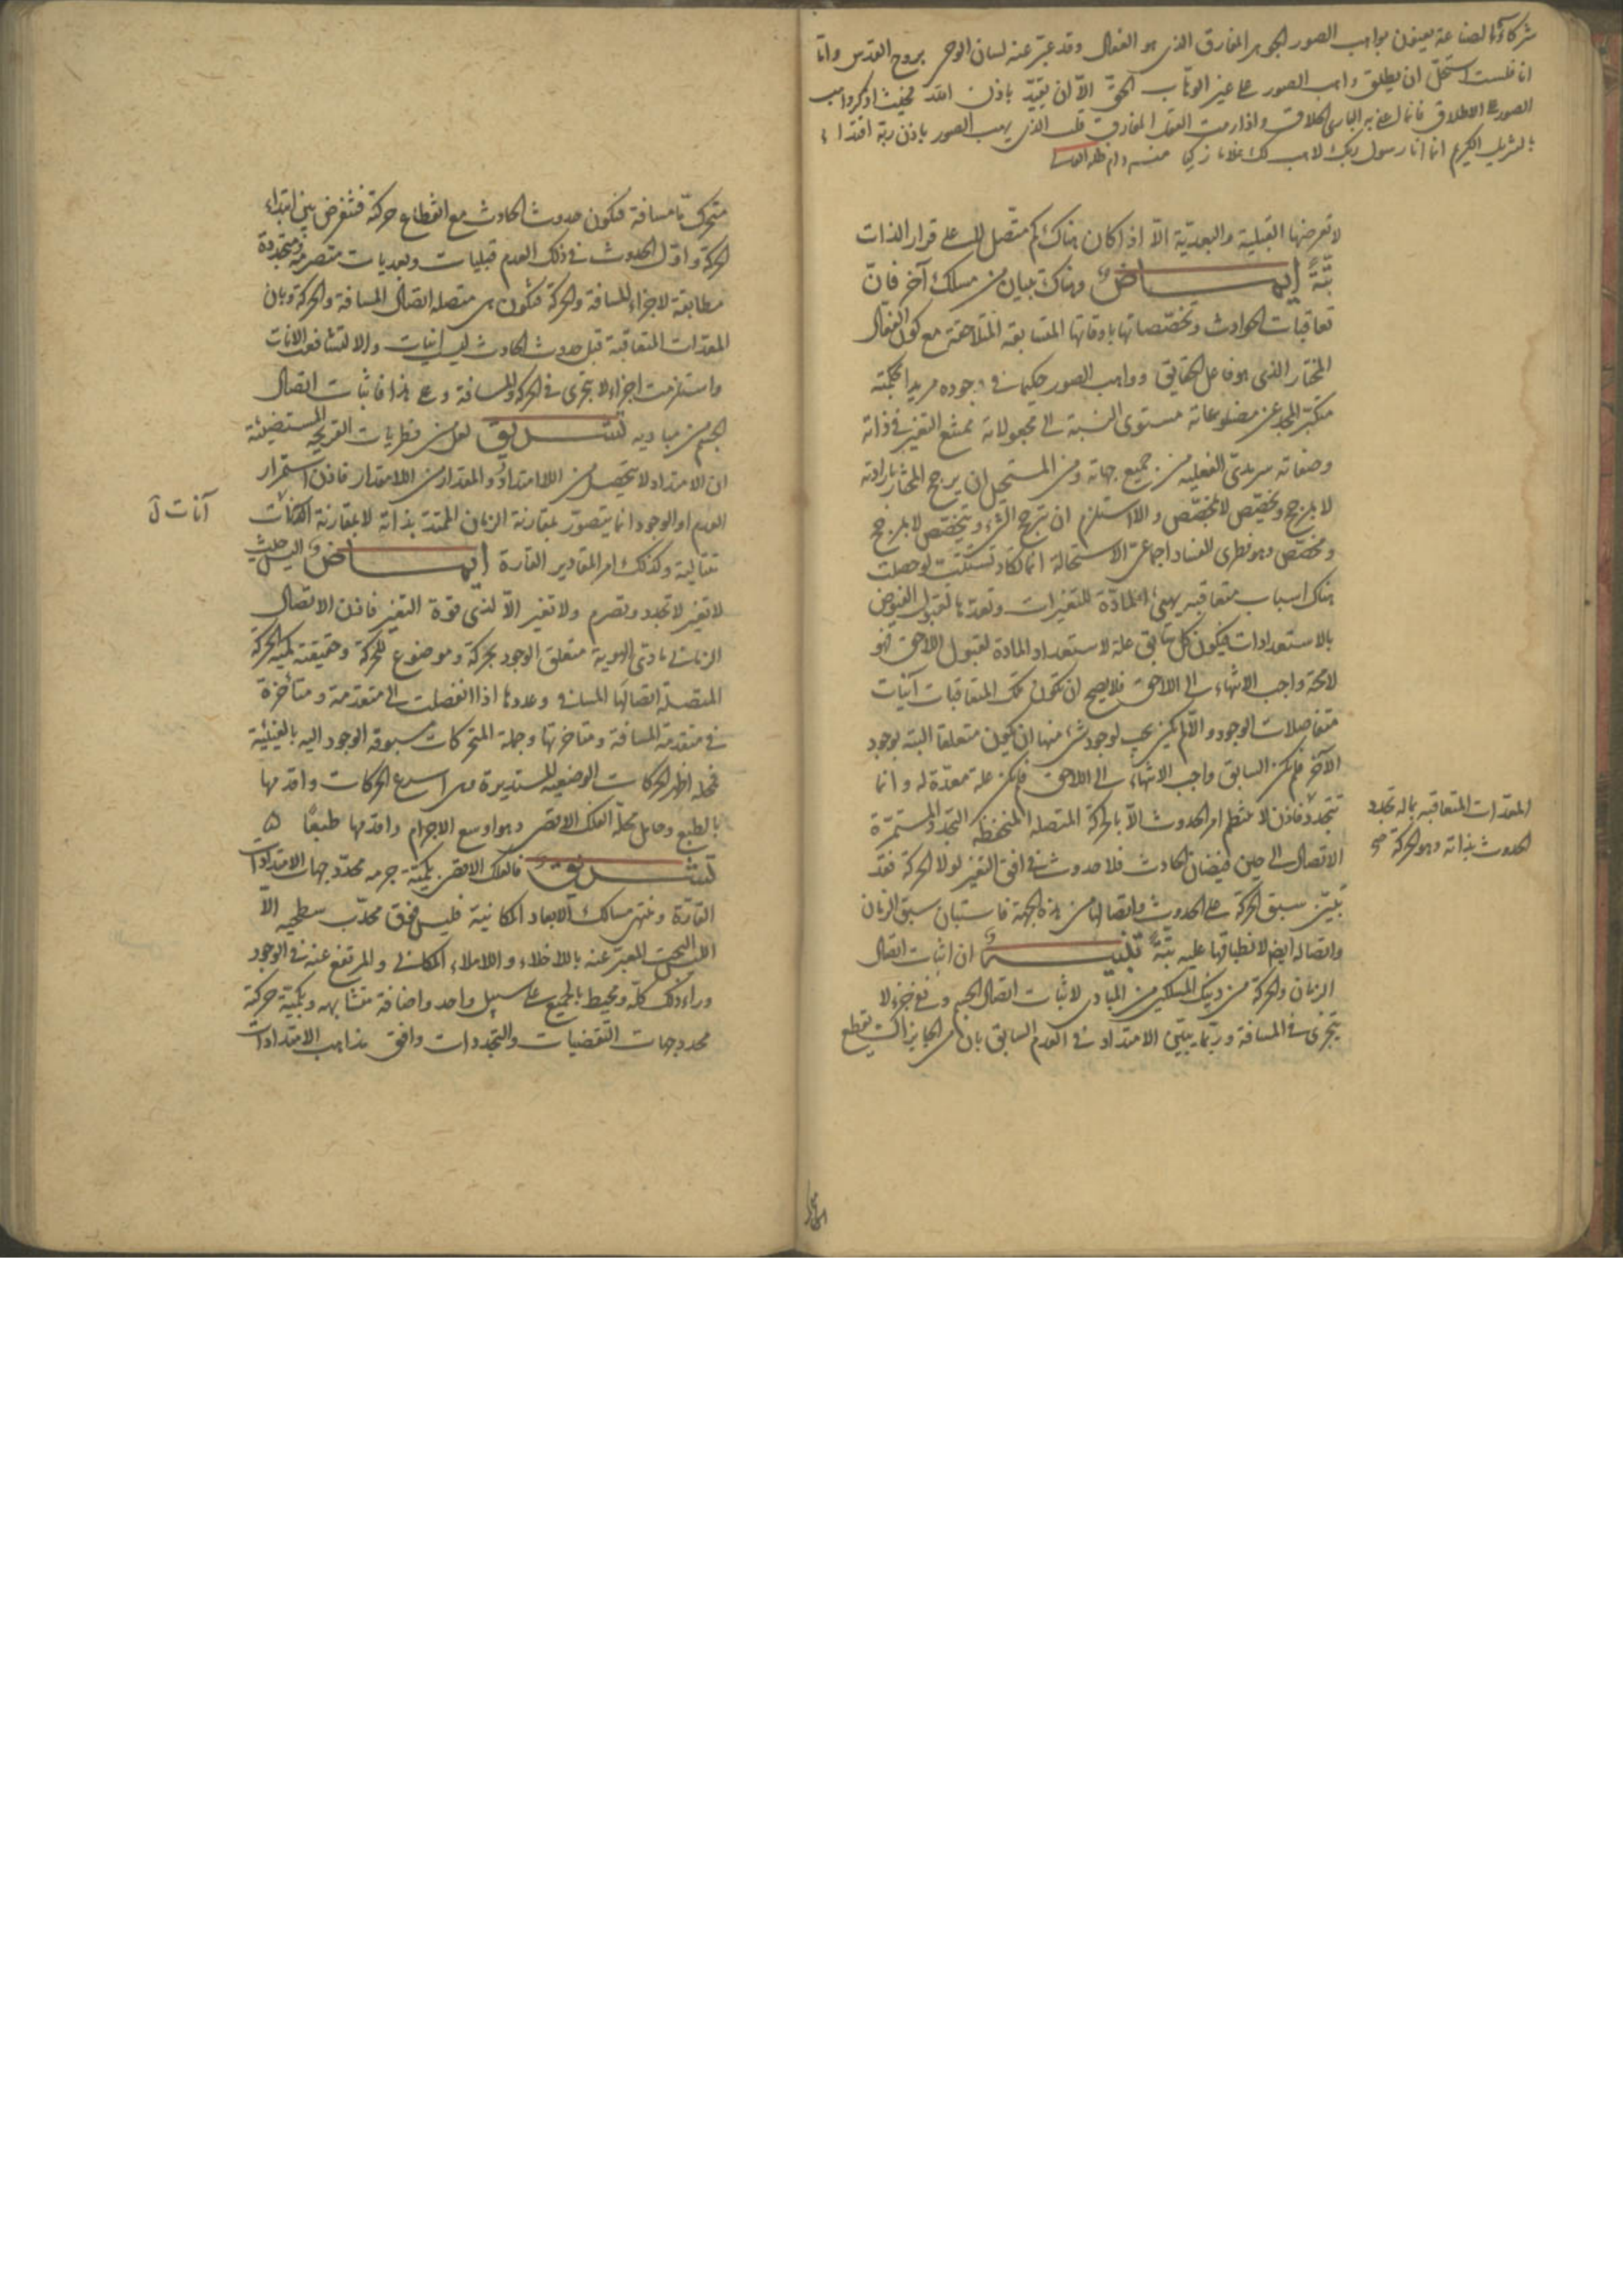 شركاؤنا لصناعة يعنون بواهب الصور الجوهر المفارق الذى هو الفعال وقد عبر عنه لسان الوحى بروح القدس واما
انا فلست استحل ان يطلق واهب الصور على غير الوهاب الحق الا ان يقيد باذن الله فحيث اذكر واهب
الصور على الاطلاق فانما اعنى به البارى الخلاق واذا رمت العقل المفارق قلت الذى يهب الصور باذن ربه اقتداء
بالتنزيل الكريم انما انا رسول ربك لاهب لك غلاما زكيا منه دام ظله
لا تعرضها القبلية والبعدية الا اذا كان هناك كم متصل لا على قرار الذات
بتة ايماض وهناك بيان من مسلك آخر فان
تعاقبات الحوادث وتخصصاتها باوقاتها المتسابقة المتلاحقة مع كون الفعال
المختار الذى هو فاعل الحقايق وواهب الصور حكيما فى وجوده مريدا لحكمته
متكبر المجد عن مضلوعاته مستوى النسبة الى مجعولاته ممتنع التغير فى ذاته
وصفاته سرمدى الفعلية من جميع جهاته ومن المستحيل ان يرجح المختار بارادته
لا بمرجح ويخصص لا بمخصص والا استلزم ان يترجح الشىء ويتخصص لا بمرجح
ومخصص وهو فطرى الفساد اجماعى الاستحالة انما تكاد تستتب لو حصلت
هناك اسباب متعاقبة يهيئ المادة للتغيرات وتعدها لقبول الفيوض
بالاستعدادات فيكون كل سابق علة لاستعداد المادة لقبول اللاحق فهو
لا محة واجب الانتهاء الى اللاحق فلا يصح ان تكون تلك المتعاقبات آنيات
متفاصلات الوجود والا لم يكن يجب لوجود شىء منها ان يكون متعلقا البتة بوجود
الآخر فلم يكن السابق واجب الانتهاء الى اللاحق فلم يكن علة معدة له وانما
تتجدد فاذن لا ينتظم امر الحدوث الا بالحركة المتصلة المنحفظة التجدد المستمرة
الاتصال الى حين فيضان الحادث فلا حدوث فى افق التغير لولا الحركة فقد
تبين سبق الحركة على الحدوث واتصالها من هذه الجهة فاستبان سبق الزمان
واتصاله ايض لانطباقها عليه بتة تلخيص ان اثبات اتصال
الزمان والحركة من ذينك المسلكين من المبادى لاثبات اتصال الجسم ونفى جزء لا
يتجزى فى المسافة وربما يبين الامتداد فى العدم السابق بان من الجايز ان يقطع
المعدات المتعاقبة بما له تجدد
الحدوث بذاته وهو الحركة صح
متحرك ما مسافة فيكون حدوث الحادث مع انقطاع حركته فتفرض بين ابتداء
الحركة واول الحدوث فى ذلك العدم قبليات وبعديات متصرمة ومتجددة
مطابقة لاجزاء المسافة والحركة فتكون هى متصلة اتصال المسافة والحركة وبان
المعدات المتعاقبة قبل حدوث الحادث ليس آنيات والا لتشافعت الآنات
واستلزمت اجزاء لا يتجزى فى الحركة والمسافة وعلى هذا فاثبات اتصال
الجسم من مباديه تشريق لعل من فطريات القريحة المستضيئة
ان الامتداد لا يتحصل من اللا امتداد والمقدار من اللا مقدار فاذن استمرار
العدم او الوجود انما يتصور بمقارنة الزمان الممتد بذاته لا بمقارنة
متتالية وكذلك امر المقادير القارة ايماض اليس حيث
لا تغير لا تجدد وتصرم ولا تغير الا لذى قوة التغير فاذن الاتصال
الزمانى مادى الهوية متعلق الوجود بحركة وموضوع للحركة وحقيقته كمية الحركة
المتصلة اتصالها المسافى وعددها اذا انفصلت الى متقدمة ومتأخرة
فى متقدمة المسافة ومتاخرتها وجملة المتحركات مسبوقة الوجود اليه بالغيئية
فمحله اظهر الحركات الوضعية المستديرة وهى اسرع الحركات واقدمها
بالطبع وحامل محله الفلك الاقصى وهو اوسع الاجرام واقدمها طبعا
تشريق فالفلك الاقصى بكمية جرمه محدد جهات الامتدادات
القارة ومنتهى مسالك الابعاد المكانية فليس فوق محدب سطحه الا
الليس البحت المعبر عنه باللا خلاء واللا ملاء المكانى والمرتفع عنه فى الوجود
وراء ذلك كله ومحيط بالجميع على سبيل واحد واضافة متشابهه وبكمية حركته
محدد جهات التقضيات والتجددات وافق مذاهب الامتدادات
آنات ل